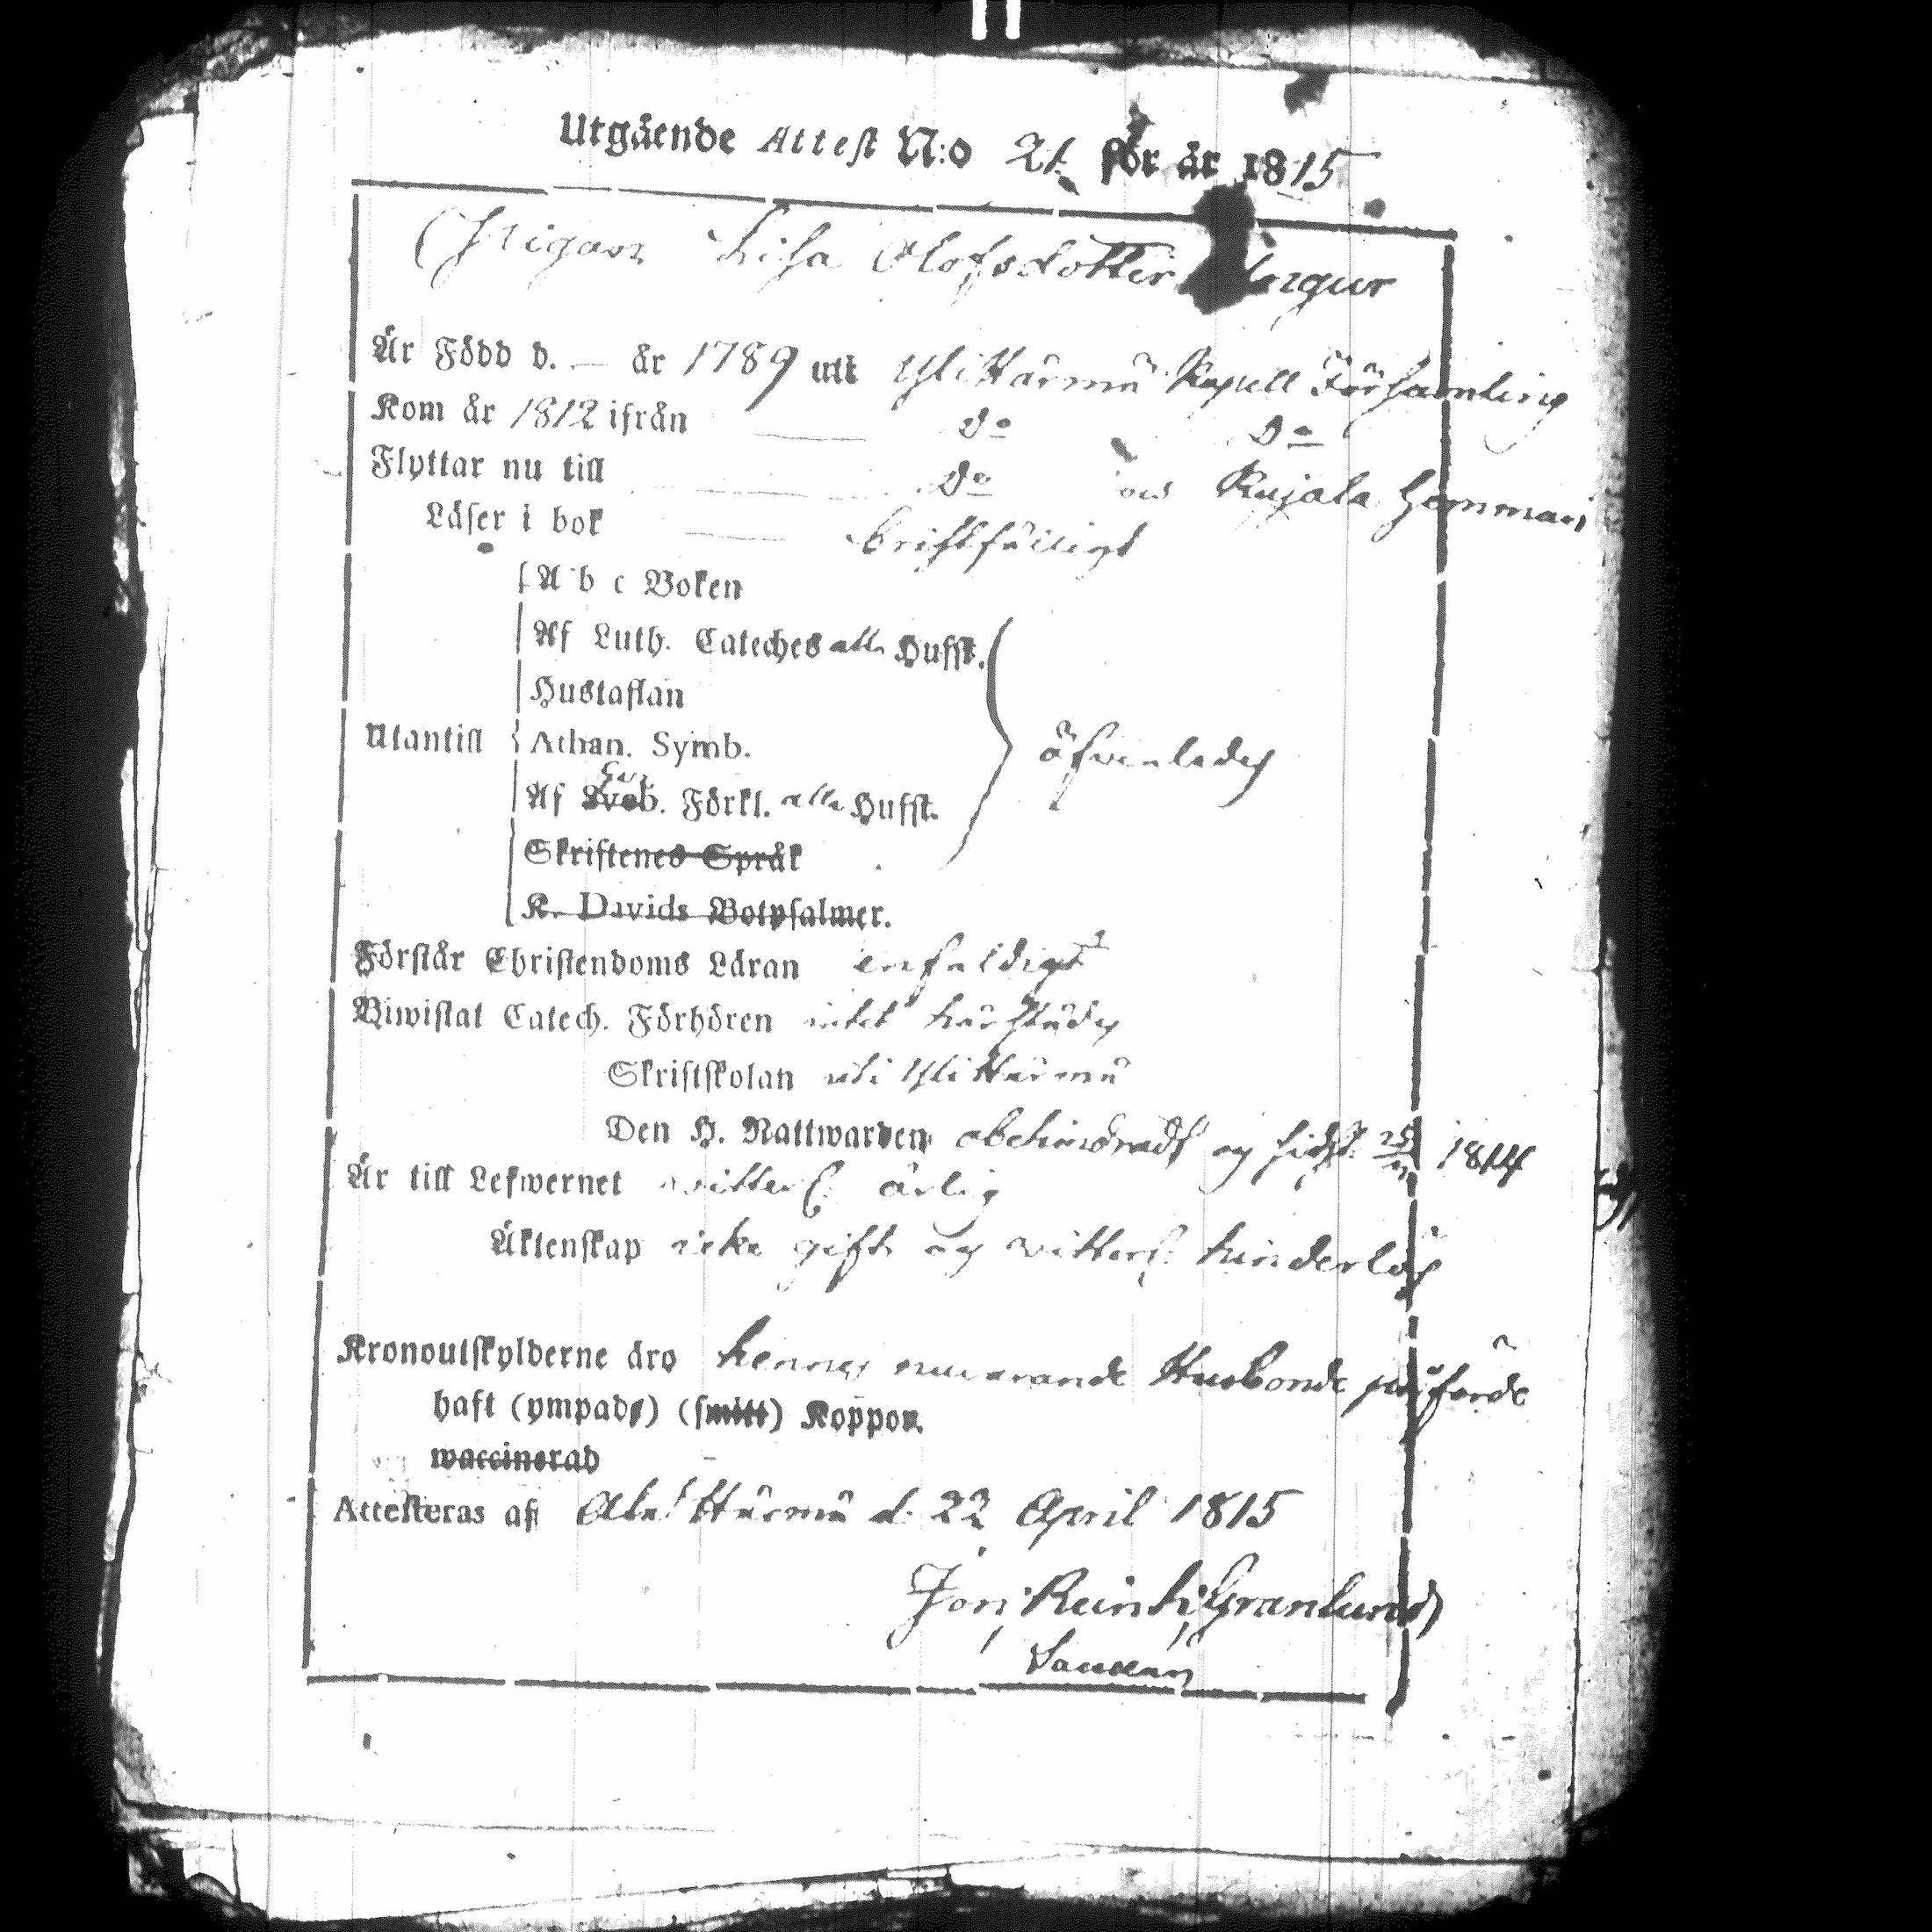 Utgående Attest N:o 21. för år 1815
Pigan Lisa Olofsdotter
Är Född d. — år 1789 uti Ylihärmä Kapell Församling
Kom år 1812 ifrån — do do
Flyttar nu till — do Kujala Hemman
Läser i bok — bristfälligt
A b c Boken
Af Luth. Cateches alla Hufst.
Hustaflan
Utantill Athan. Symb. äfvenledes
Af Sveb. Förkl. alla Hufst.
Skriftenes Språk
K. Davids Botpsalmer.
Förstår Christendoms Läran enfaldigt
Biwistat Catech. Förhören härstädes
Skriftskolan uti Ylihärmä
Den H. Nattwarden obehindradt og sidst 1814
Är till Lefwernet vitterl. ärlig
Äktenskap icke gift og vitterl. hinderlös
Kronoutskylderne äro hennes nuvarande Husbonde påförde
haft (ympade) (smitt) Koppor.
waccinerad
Attesteras af Alahärmä d. 22 April 1815
Jon. Reinh. Granlund